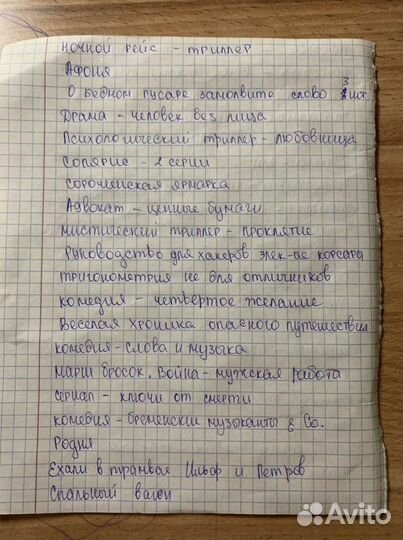 ночной рейс – триллер
Афоня
О бедном гусаре замолвите слово 3 шт
Драма – человек без лица
Психологический триллер – любовница
Солярис – 2 серии
сорочинская ярмарка
Адвокат – ценные бумаги
мистический триллер – проклятие
Руководство для хакеров элек-ые корсары
тригонометрия не для отличников
комедия – четвертое желание
Веселая хроника опасного путешествия
комедия – слова и музыка
марш бросок. Война – мужская работа
сериал – ключи от смерти
комедия – бременские музыканты & Co.
Родня
Ехали в трамвае Ильф и Петров
Спальный вагон
Avito